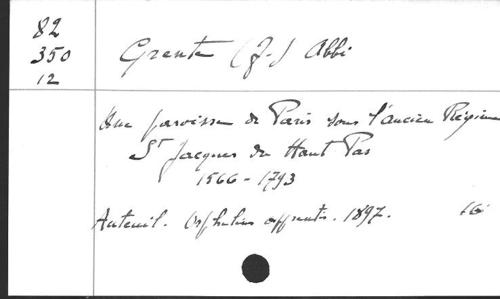 82
350
12
Grente (J.-) Abbé
Une paroisse de Paris sous l'ancien Régime
St Jacques du Haut Pas
1566-1793
Auteuil. Orphelins apprentis. 1897. 16